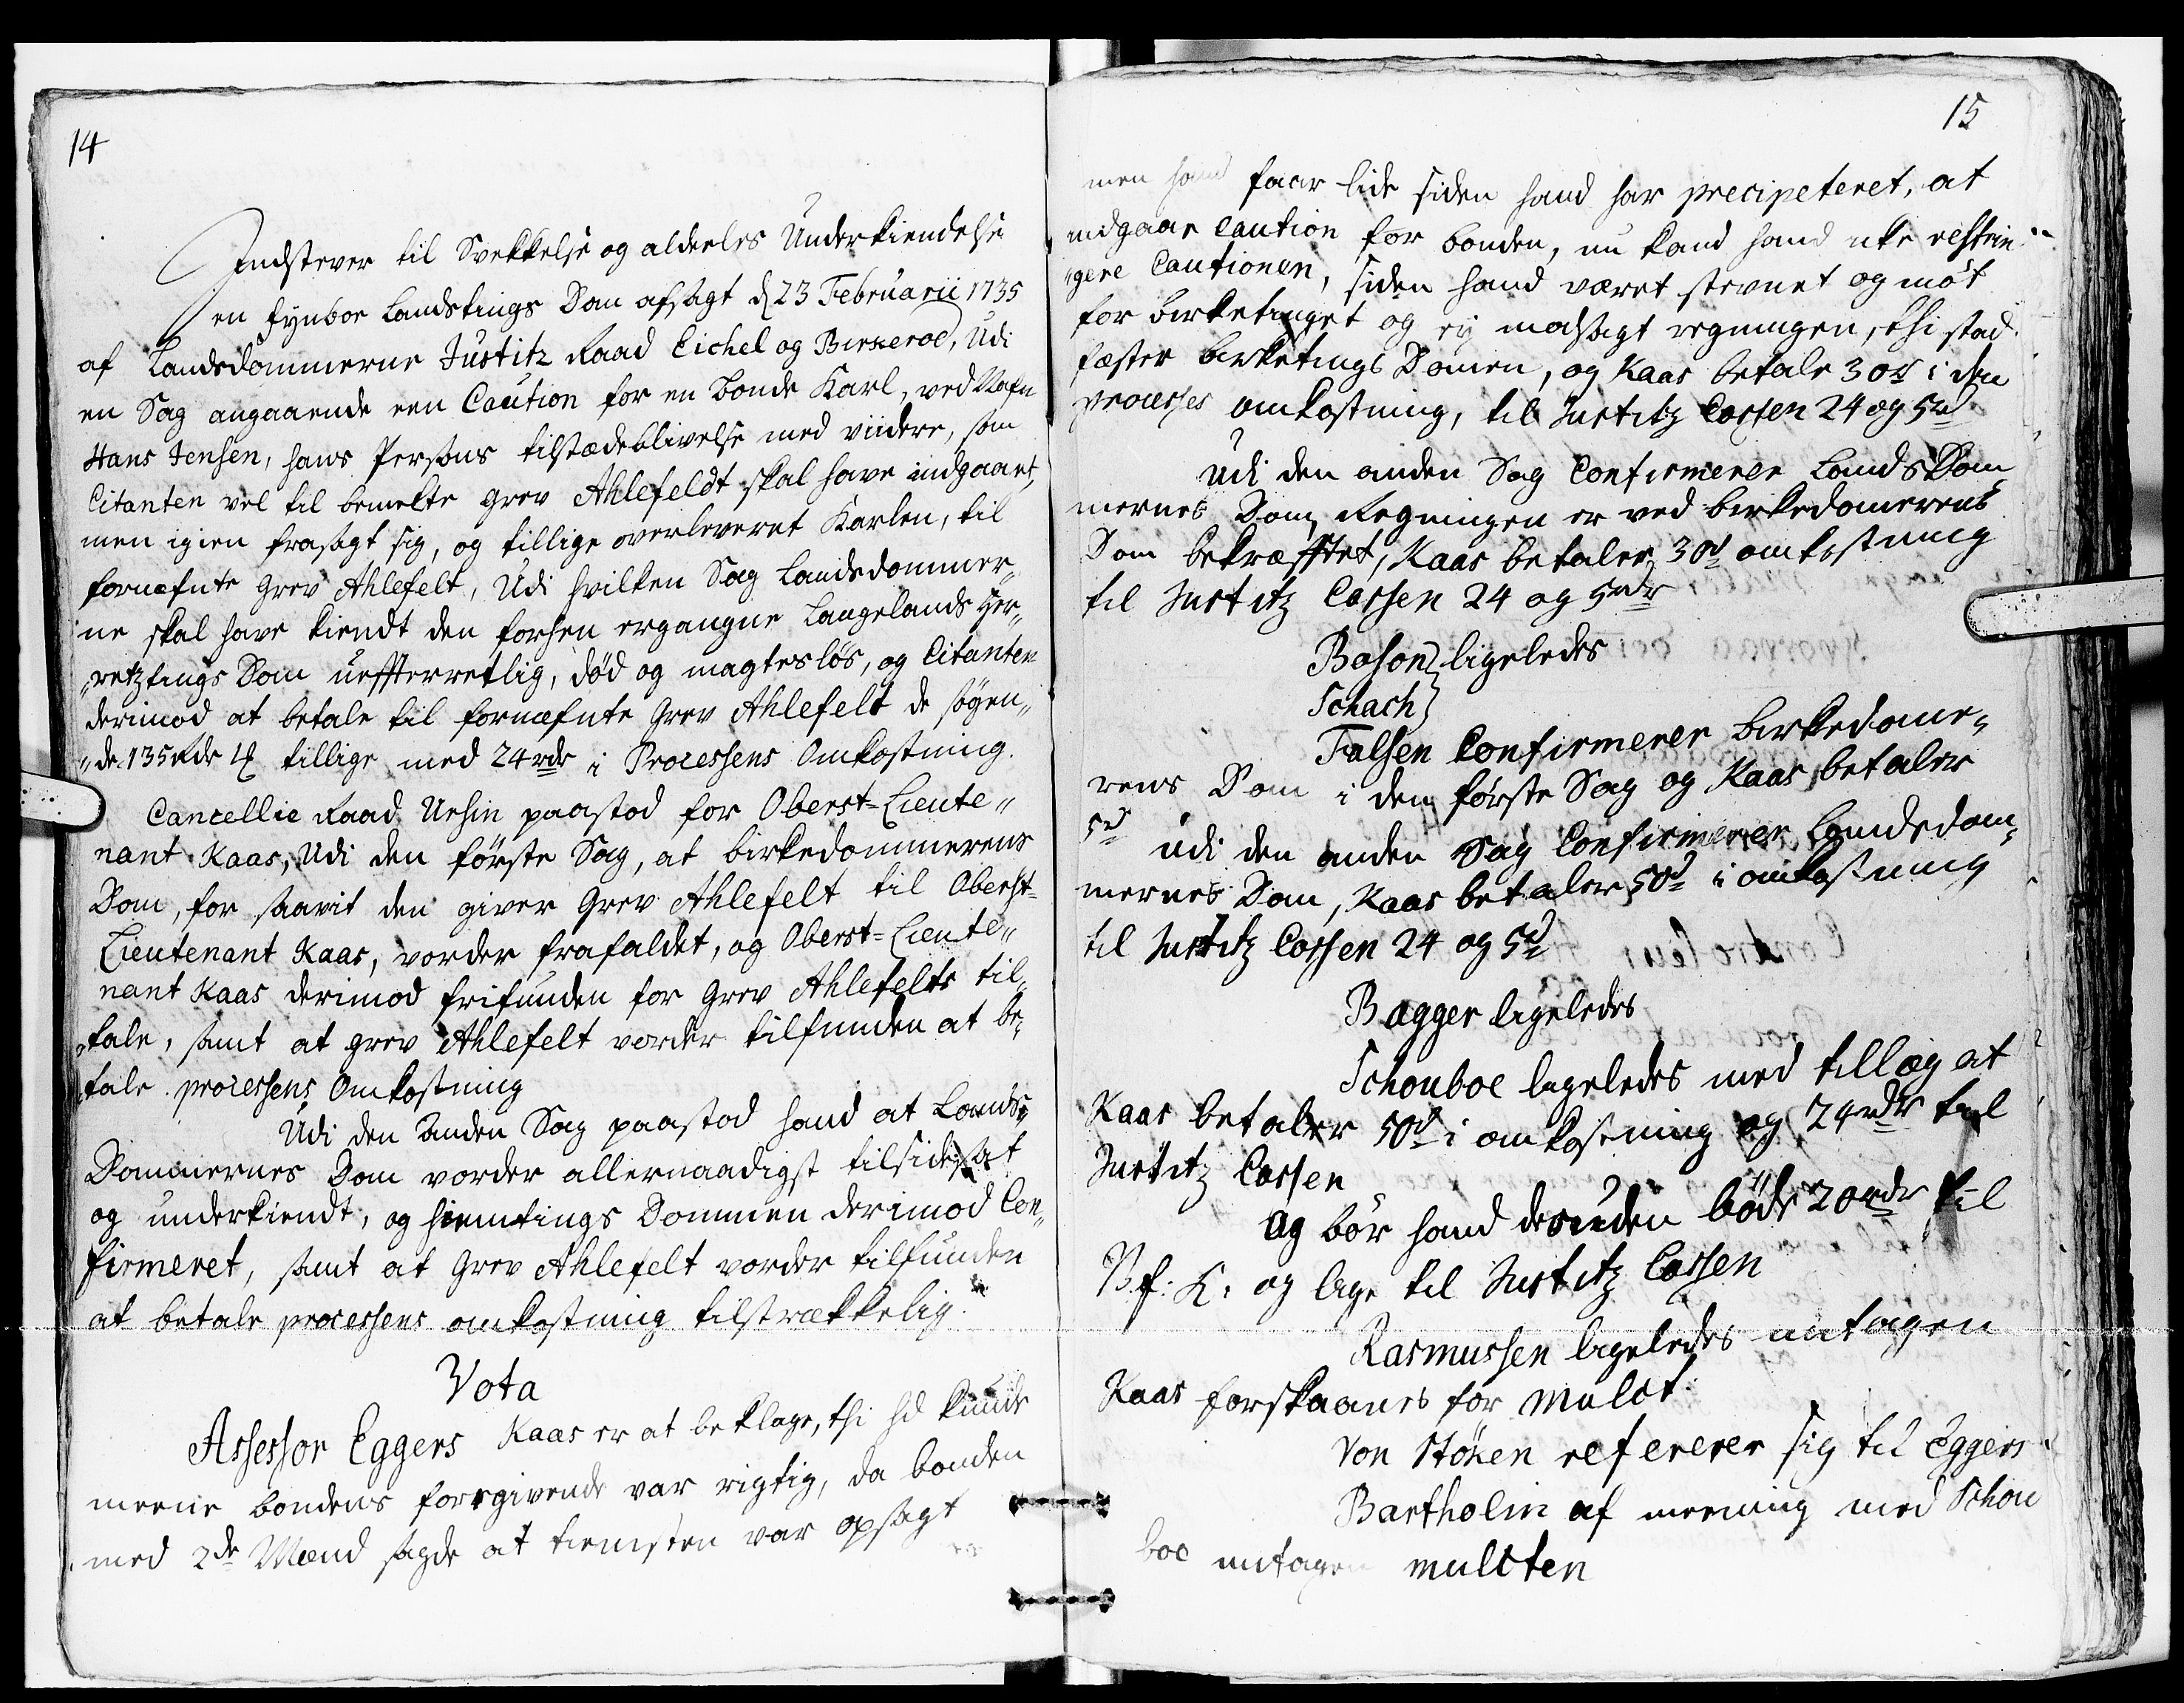 14
Indstever til Svekkelse og aldeeles Underkiendelse
en fynboe Landstings Dom afsagt d 23 Februarii 1735
af Landsdommerne Justitz Raad Eichel og Birkeroe, Udi
en Sag angaaende een Caution for en Bonde Karl, ved Nafn
Hans Jensen, hans Persons tilstædeblivelse med viidere, som
Citanten vel til bemelte Grev Ahlefeldt skal have indgaaet,
men igien frasagt sig, og tillige overleveret Karlen, til
fornæfnte Grev Ahlefelt, Udi hvilken Sag Landsdommer„
ne skal have kiendt den forhen ergangne Langelands Her„
„retztings Dom ueffterretlig, død og magtesløs, og Citanten
derimod at betale til fornæfnte Grev Ahlefelt de søgen„
„de 135 Rdr 4 tillige med 24 rdr i Processens Omkostning.
Cancellie Raad Uhsin paastod for Oberst=Lieute„
nant Kaas, Udi den første Sag, at birkedommerens
Dom, for saavit den giver Grev Ahlefelt til Oberst=
Lieutenant Kaas, vorder frafaldet, og Oberst=Lieute„
nant Kaas derimod frifunden for Grev Ahlefelts til„
„tale, samt at Grev Ahlefelt vorder tilfunden at be„
„tale processens Omkostning
Udi den Anden Sag paastod hand at Lands„
Dommernes Dom vorder allernaadigst tilsidesat
og underkiendt, og hiemtings Dommen derimod Con„
firmeret, samt at Grev Ahlefelt vorder tilfunden
at betale processens omkostning tilstrækkelig.
Vota
Assessor Eggers Kaas er at beklage, thi hd kunde
meene bondens foregivende var rigtig, da bonden
med 2de Mænd sagde at tienisten var opsagt
15
men hand faar lide siden hand har precipeteret, at
indgaae caution for bonden, nu kand hand icke restrin„
„gere Cautionen, siden hand været stevnet og møt
for birketinget og ey modsagt regningen, thi stad„
fæster birketings Domen, og Kaas betale 30 rd i den
processes omkostning, til Justitz Cassen 24 og 5 rd
Udi den anden Sag Confirmerer LandsDom
mernes Dom, Regningen er ved birkedomerens
Dom bekræfftet, Kaas betaler 30 rd omkostning
til Justitz Cassen 24 og 5 rdr
Boson } ligeledes
Schach }
Falsen Confirmerer birkedome„
rens Dom i den første Sag og Kaas betaler
5 rd
udi den anden Sag Confirmerer Landsdom„
mernes Dom, Kaas betaler 50 rd i omkostning
til Justitz Cassen 24 og 5 rd
Bagger ligeledes
Schouboe ligeledes med tillæg at
Kaas betaler 50 rd i omkostning og 24 rdr til
Justitz Cassen
og bør hand desuden bøde 20 rdr til
V. f: K: og lige til Justitz Cassen
Rasmussen ligeledes untagen
Kaas forskaanes for Mulct.
von Støken refererer sig til Eggers
Bartholin af meening med Schou
boe untagen mulcten